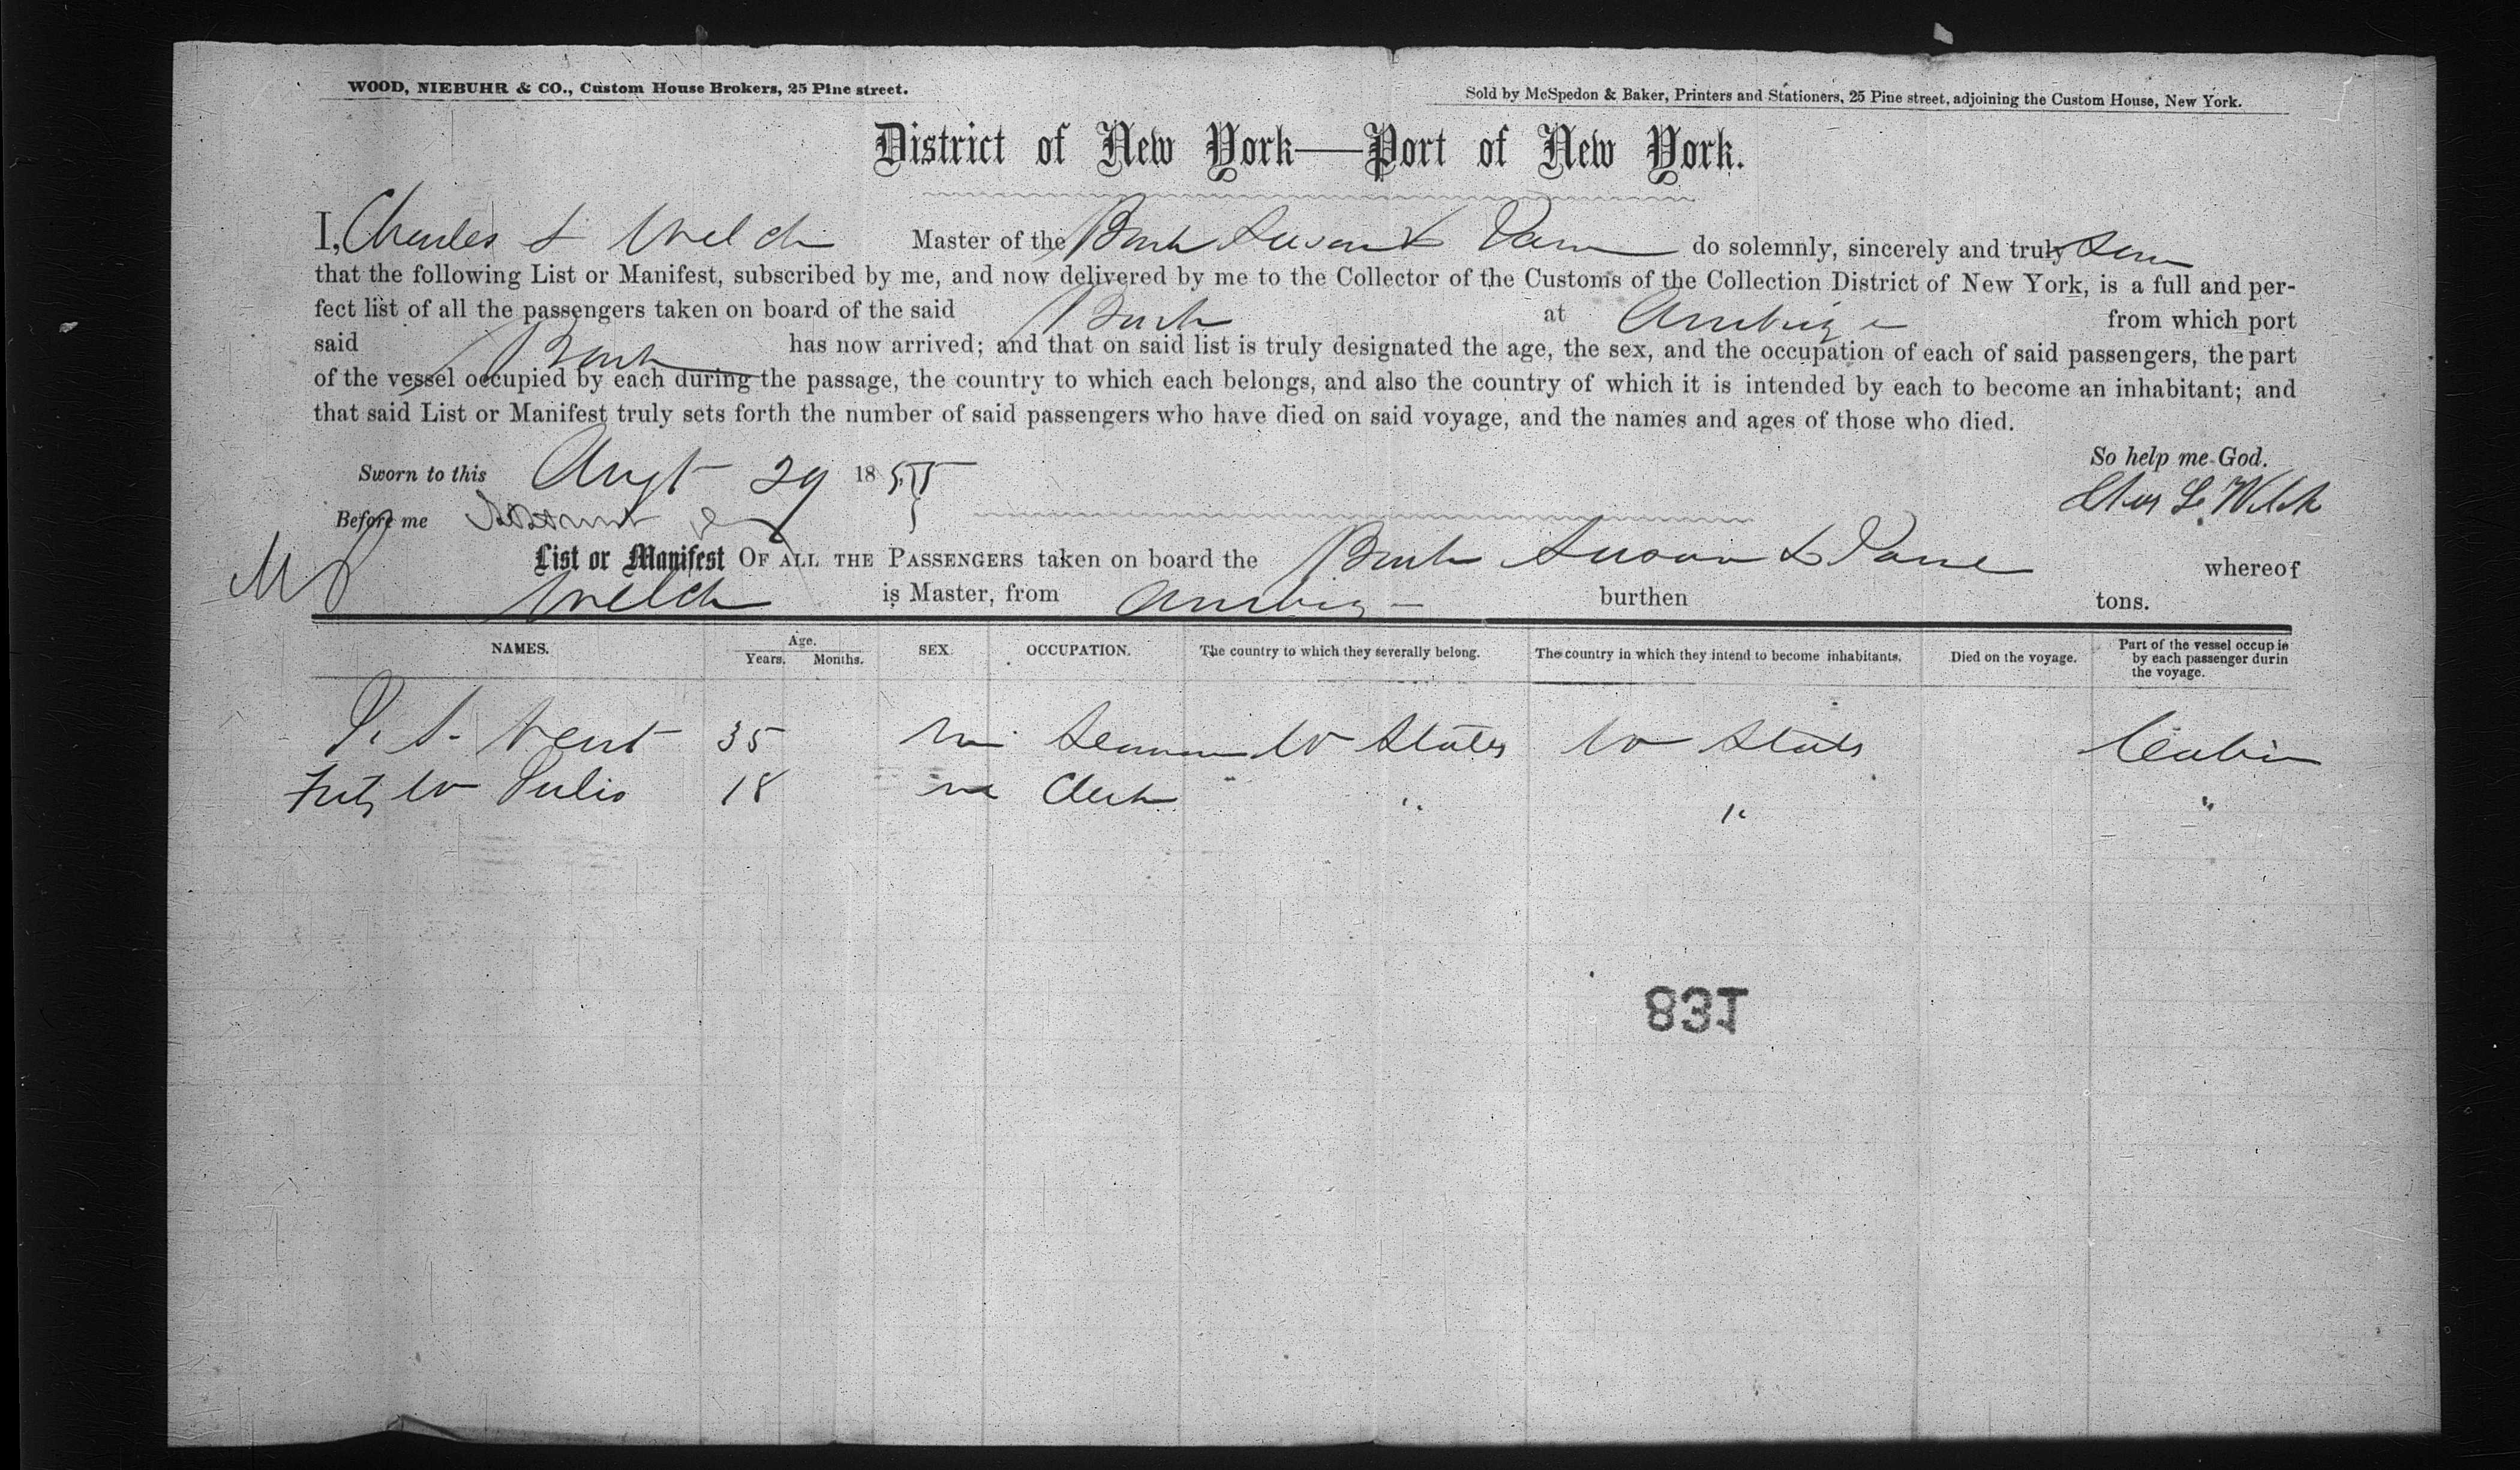 WOOD, NIEBUHR & CO., Custom House Brokers, 25 Pine street.
Sold by McSpedon & Baker, Printers and Stationers, 25 Pine street, adjoining the Custom House, New York.
District of New York—Port of New York.
I, Charles L Welch Master of the Bark Susan L do solemnly, sincerely and truly
that the following List or Manifest, subscribed by me, and now delivered by me to the Collector of the Customs of the Collection District of New York, is a full and per-
fect list of all the passengers taken on board of the said Bark at from which port
said Bark has now arrived; and that on said list is truly designated the age, the sex, and the occupation of each of said passengers, the part
of the vessel occupied by each during the passage, the country to which each belongs, and also the country of which it is intended by each to become an inhabitant; and
that said List or Manifest truly sets forth the number of said passengers who have died on said voyage, and the names and ages of those who died.
So help me God.
Sworn to this Augt 29 1855
Chas L Welch
Before me
List or Manifest OF ALL THE PASSENGERS taken on board the Bark Susan L whereof
Welch is Master, from burthen tons.
NAMES. Age. Years. Months. SEX. OCCUPATION. The country to which they severally belong. The country in which they intend to become inhabitants. Died on the voyage. Part of the vessel occupie by each passenger durin the voyage.
35 m Seaman U States U States Cabin
18 m Clerk " " "
831